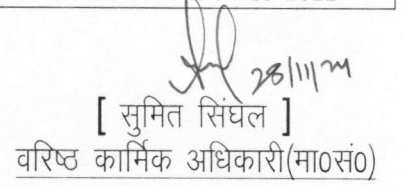 28/11/24
[ सुमित सिंघल ]
वरिष्ठ कार्मिक अधिकारी(मा0सं0)